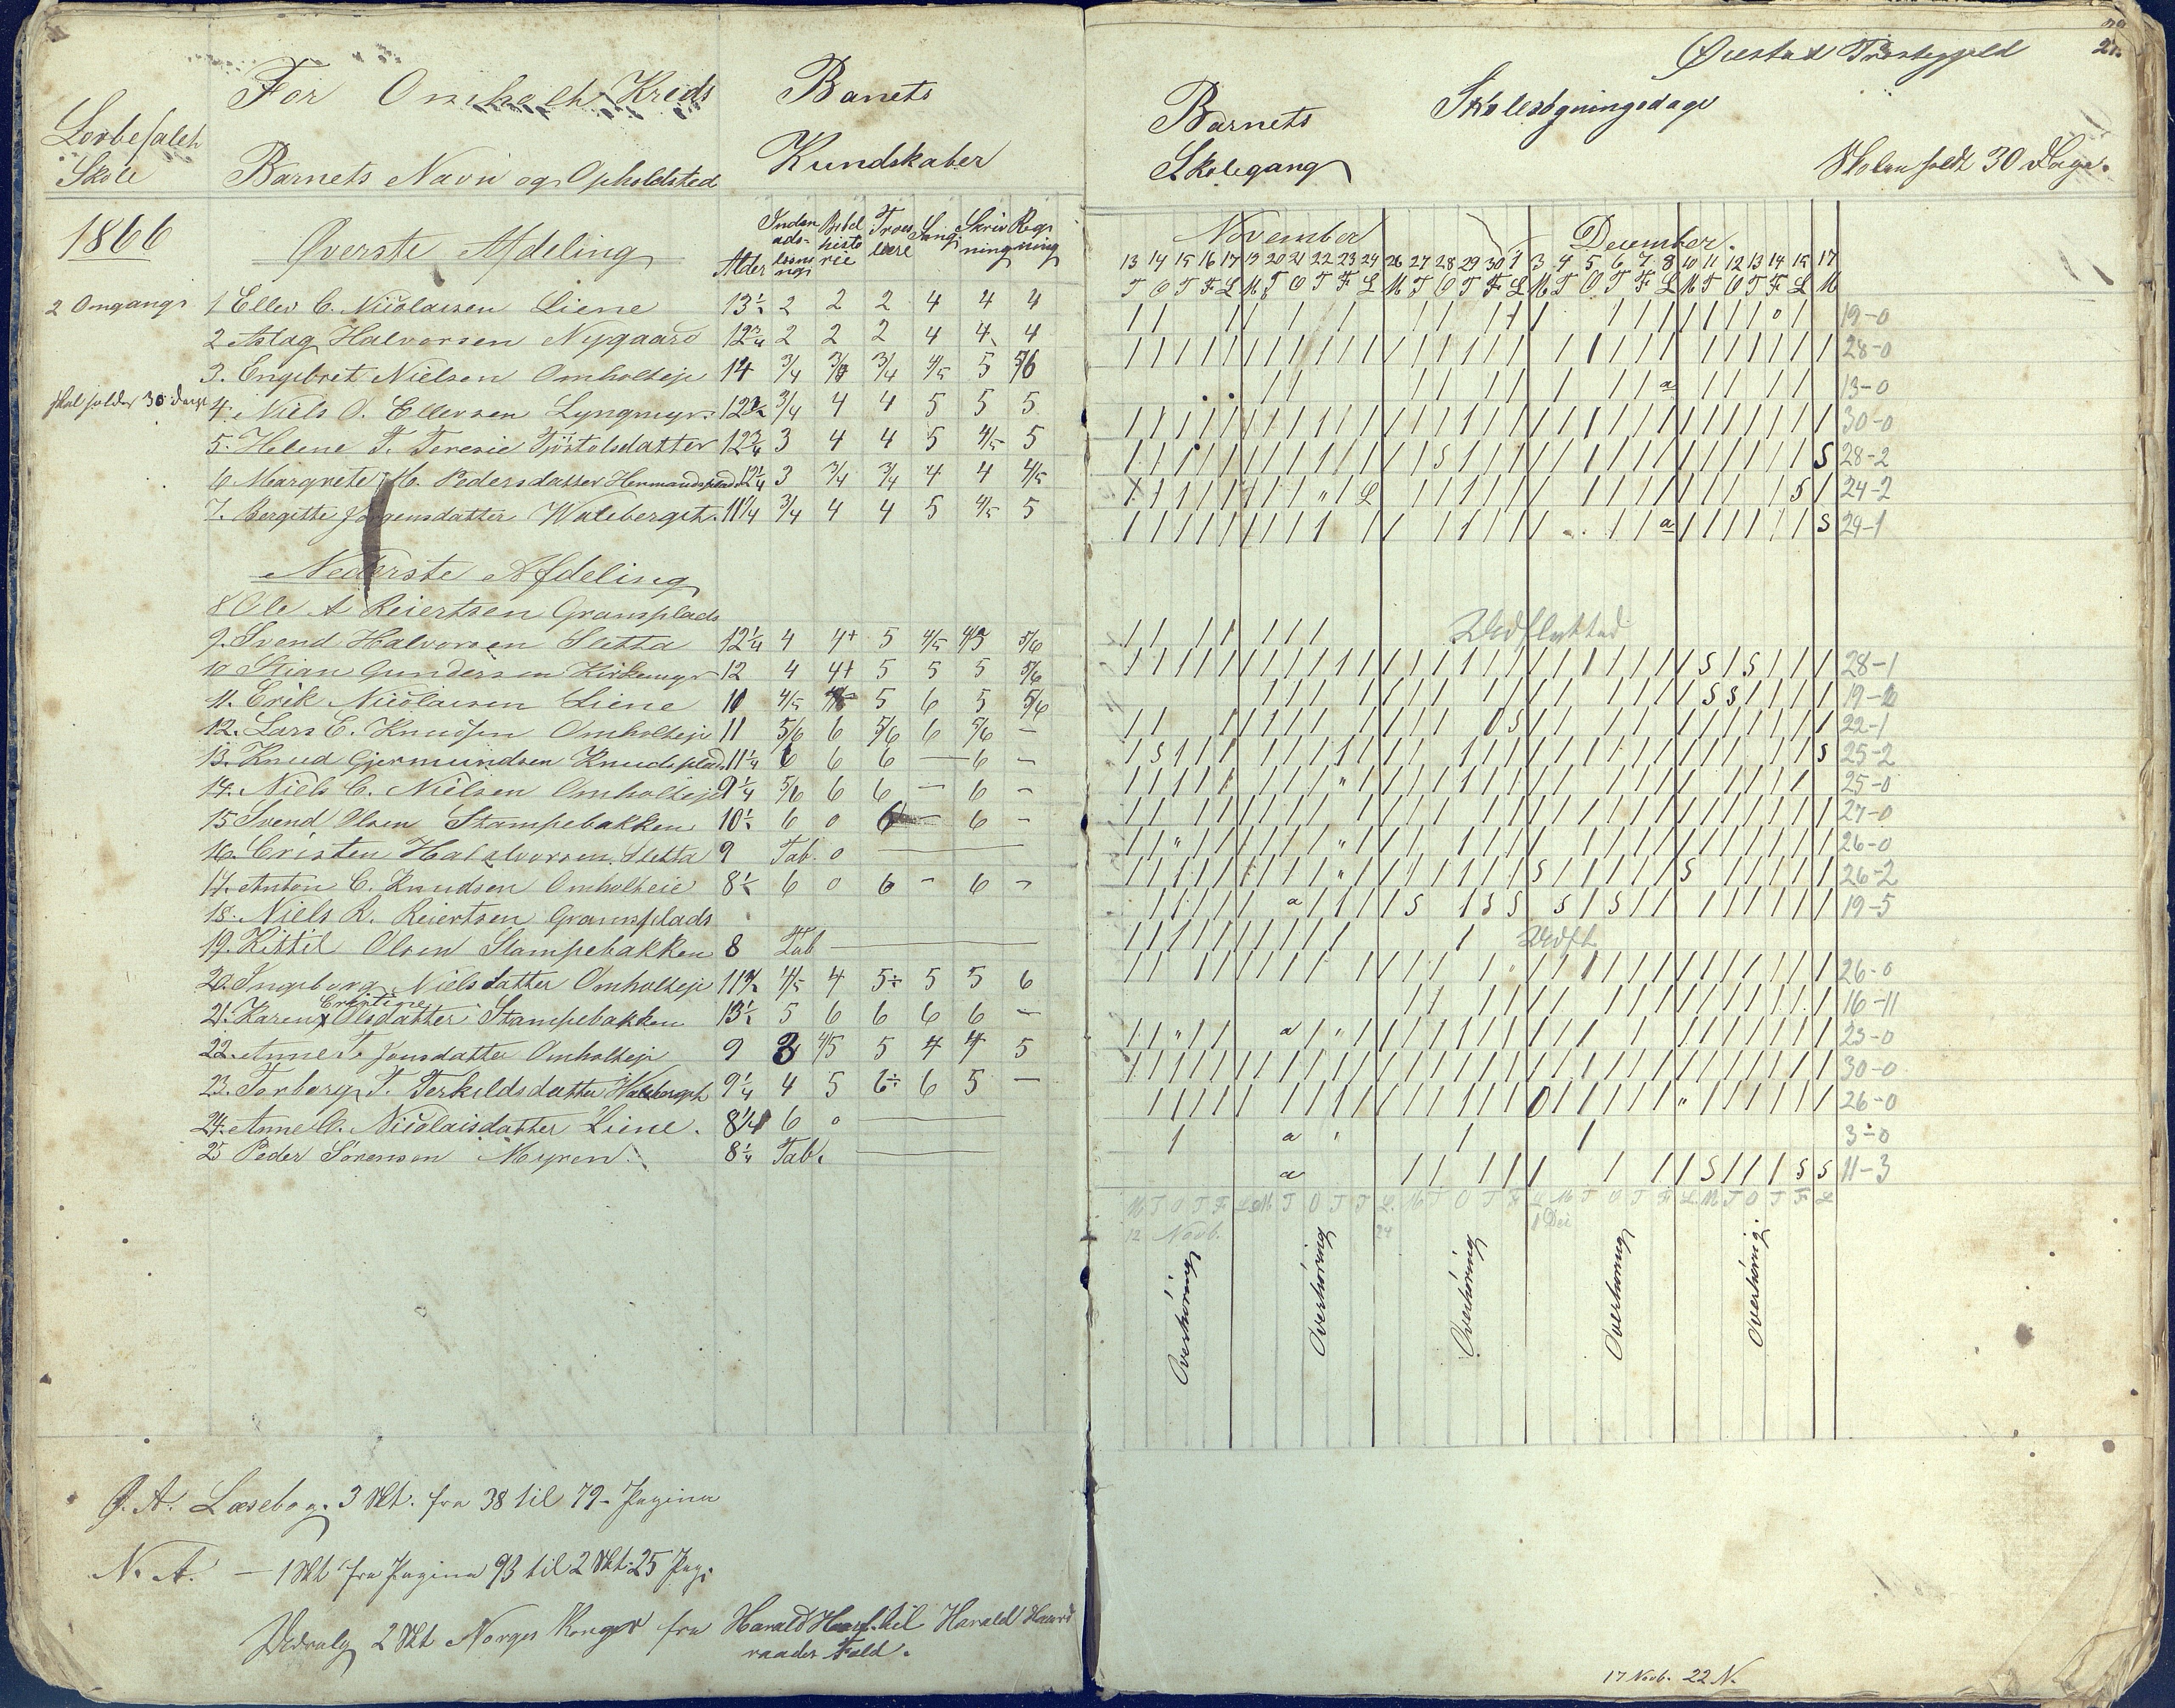 For Omholt Kreds
Lovbefalet
Skole
Barnets Navn og Opholdsted
Banets
Kundskaber
1866
Øverste Afdeling
Alder Indenadslæsning Bibelhistorie Troeslære Sang Skrivning Regning
2 Omgangs
1 Ellev C. Nicolaisen Liene 13½ 2 2 2 4 4 4
2 Aslag Halvorsen Nygaard 12¾ 2 2 2 4 4 4
3. Engebret Nielsen Omholteje 14 3/4 3/4 3/4 4/5 5 5/6
skal holdes 30 dage
4. Niels O. Ellevsen Lyngmyr 12½ 3/4 4 4 5 5 5
5. Helene T. Teresie Tjöstolsdatter 12¾ 3 4 4 5 4/5 5
6 Margrete M. Pedersdatter Hermandsplads 12¼ 3 3/4 3/4 4 4 4/5
7. Bergitte Jørgensdatter Waleberget 11¼ 3/4 4 4 5 4/5 5
Nederste Afdeling
8 Ole A Reiertsen Gramsplads
9. Svend Halvorsen Sletta 12¼ 4 4+ 5 4/5 4/5 5/6
10 Stian Gundersen Kirkemyr 12 4 4+ 5 5 5 5/6
11. Erik Nicolaisen Liene 10 4/5 4/5 5 6 5 5/6
12. Lars E. Knudsen Omholteje 11 5/6 6 5/6 6 5/6 —
13. Knud Gjermundsen Knudsplads 11¼ 6 6 6 — 6 —
14. Niels C. Nielsen Omholteje 9¼ 5/6 6 6 — 6 —
15 Svend Olsen Stampebakken 10½ 6 0 6 — 6 —
16. Cristen Halvorsen Sletta 9 Tab. 0 —
17. Anton C. Knudsen Omholteie 8½ 6 0 6 — 6 —
18. Niels R. Reiertsen Gramsplads
19. Kittil Olsen Stampebakken 8 Tab —
20. Ingeborg Nielsdatter Omholteje 11¾ 4/5 4 5÷ 5 5 6
21. Karen Cristine Olsdatter Stampebakken 13½ 5 6 6 6 6 —
22. Anne T. Jensdatter Omholteje 9 3 4/5 5 4 4 5
23. Torborg T. Terkildsdatter Waleberget 9¼ 4 5 6÷ 6 5 —
24. Anne C. Nicolaisdatter Liene. 8¼ 6 0 —
25 Peder Sörensen Myren 8¼ Tab. —
Ø. A. Læsebog. 3 Skt. fra 38 til 79 Pagina
N. A. — 1 Skt fra Pagina 93 til 2 Skt. 25 Pag.
2 Skt Norges Konger fra Harald Haarf. til Harald Haard
raades Fald.
Øiestad Præstegjeld
21.
Barnets
Skolegang
Skolesögningsdage
Skolen holdt 30 Dage.
November December.
13 14 15 16 17 19 20 21 22 23 24 26 27 28 29 30 1 3 4 5 6 7 8 10 11 12 13 14 15 17
T O T F L M T O T F L M T O T F L M T O T F L M T O T F L M
19-0
28-0
13-0
30-0
28-2
24-2
24-1
Udflyttad
28-1
19-2
22-1
25-2
25-0
27-0
26-0
26-2
19-5
Udfl.
26-0
16-11
23-0
30-0
26-0
3-0
11-3
12 Novb. 24 1 Dec
Overhöring Overhöring Overhöring Overhöring Overhöring
17 Novb. 22 N.